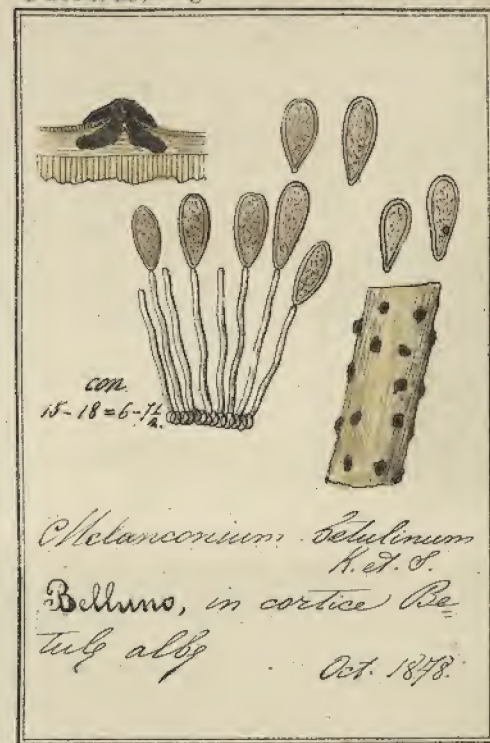 con.
15-18 = 6-7½
Melanconium betulinum
K. et S.
Belluno, in cortice Be=
tulę albę
Oct. 1878.